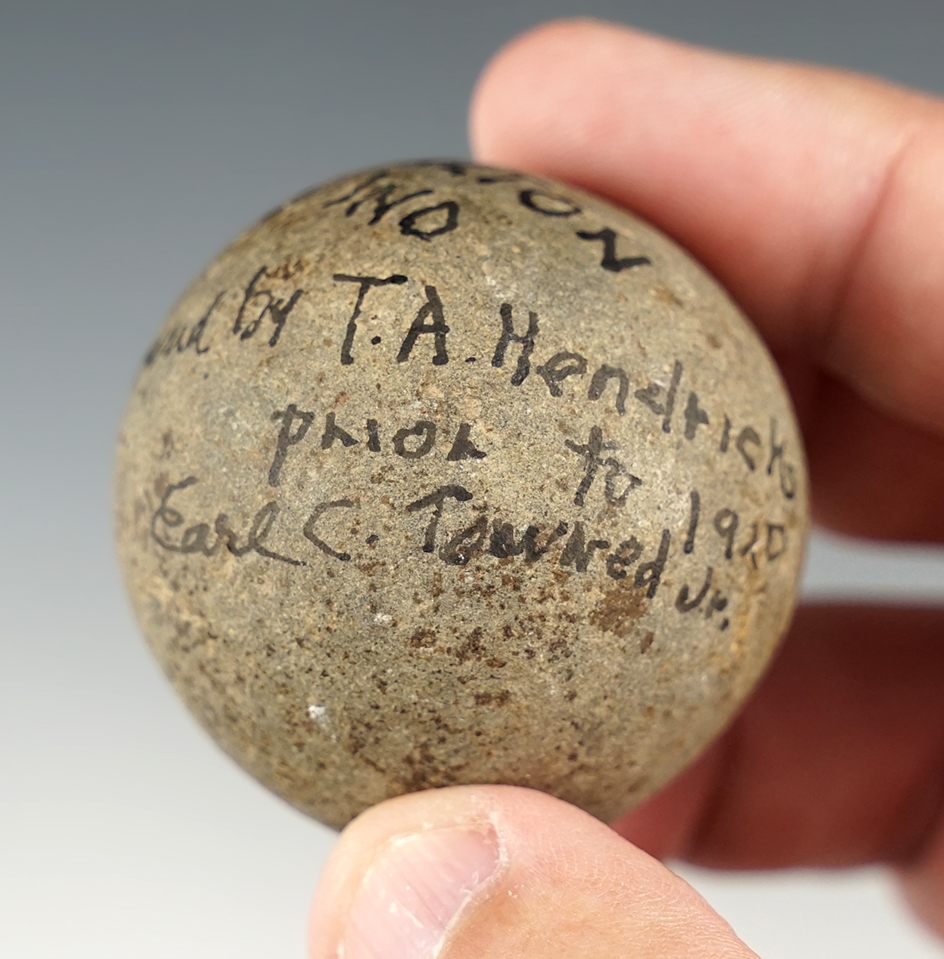 by T.A. Hendricks
prior to 1920
Earl C. Townsed Jr.